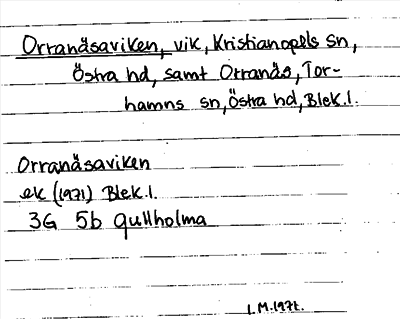 Orranäsaviken, vik, Kristianopels sn,
Östra hd, samt Orranäs, Tor-
hamns sn, Östra hd, Blek.l.
Orranäsaviken
ek (1971) Blek.l.
3G 5b Gullholma
I.M.1971.